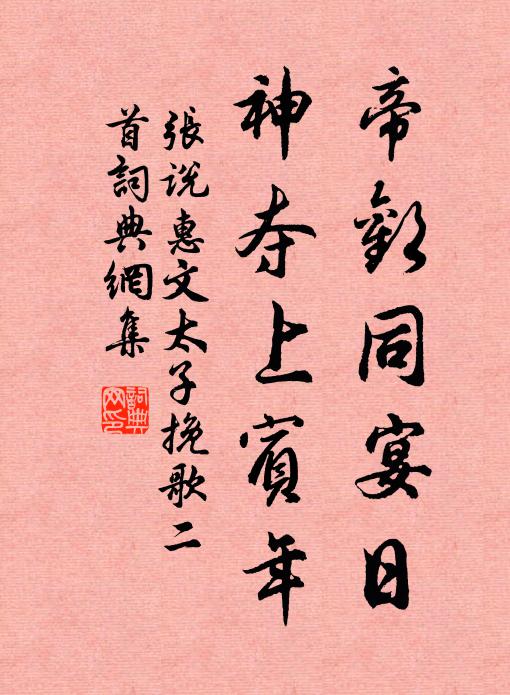 帝歡同宴日
神夺上賓年
張説惠文太子挽歌二
首詞典網集
詞典
网印